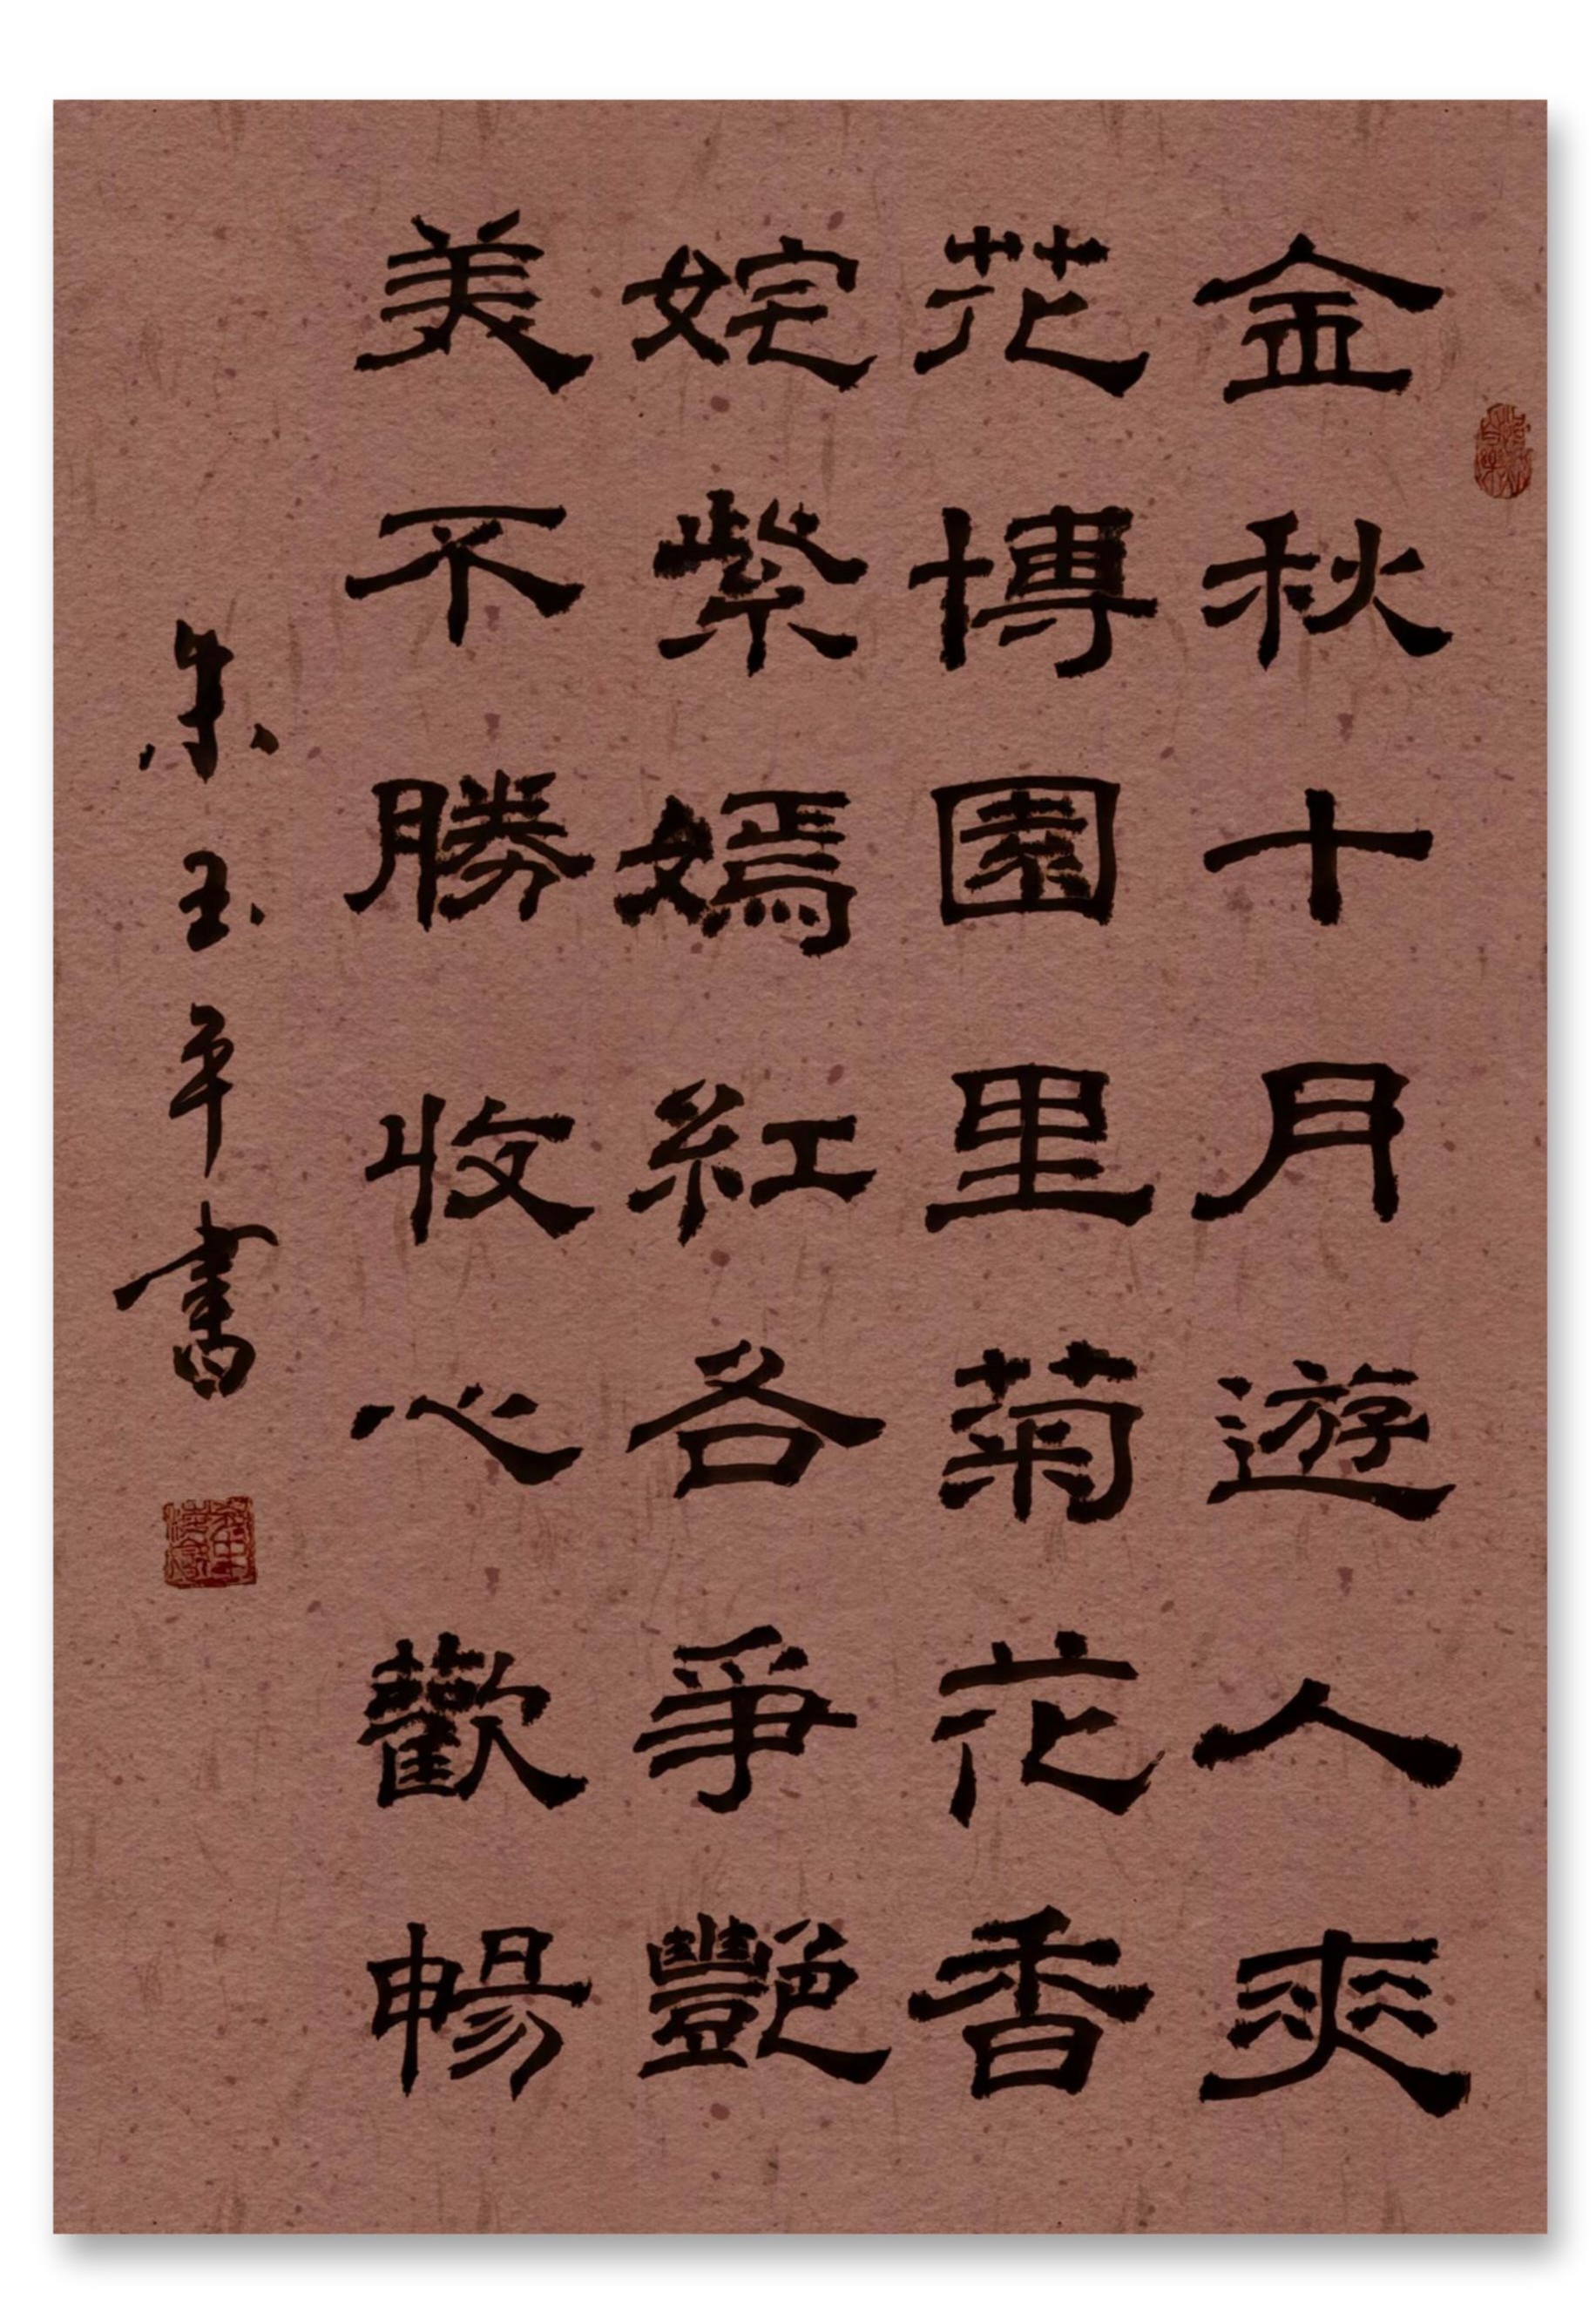 金秋十月遊人爽
花博園里菊花香
姹紫嫣紅各爭艷
美不勝收心歡暢
朱玉平書